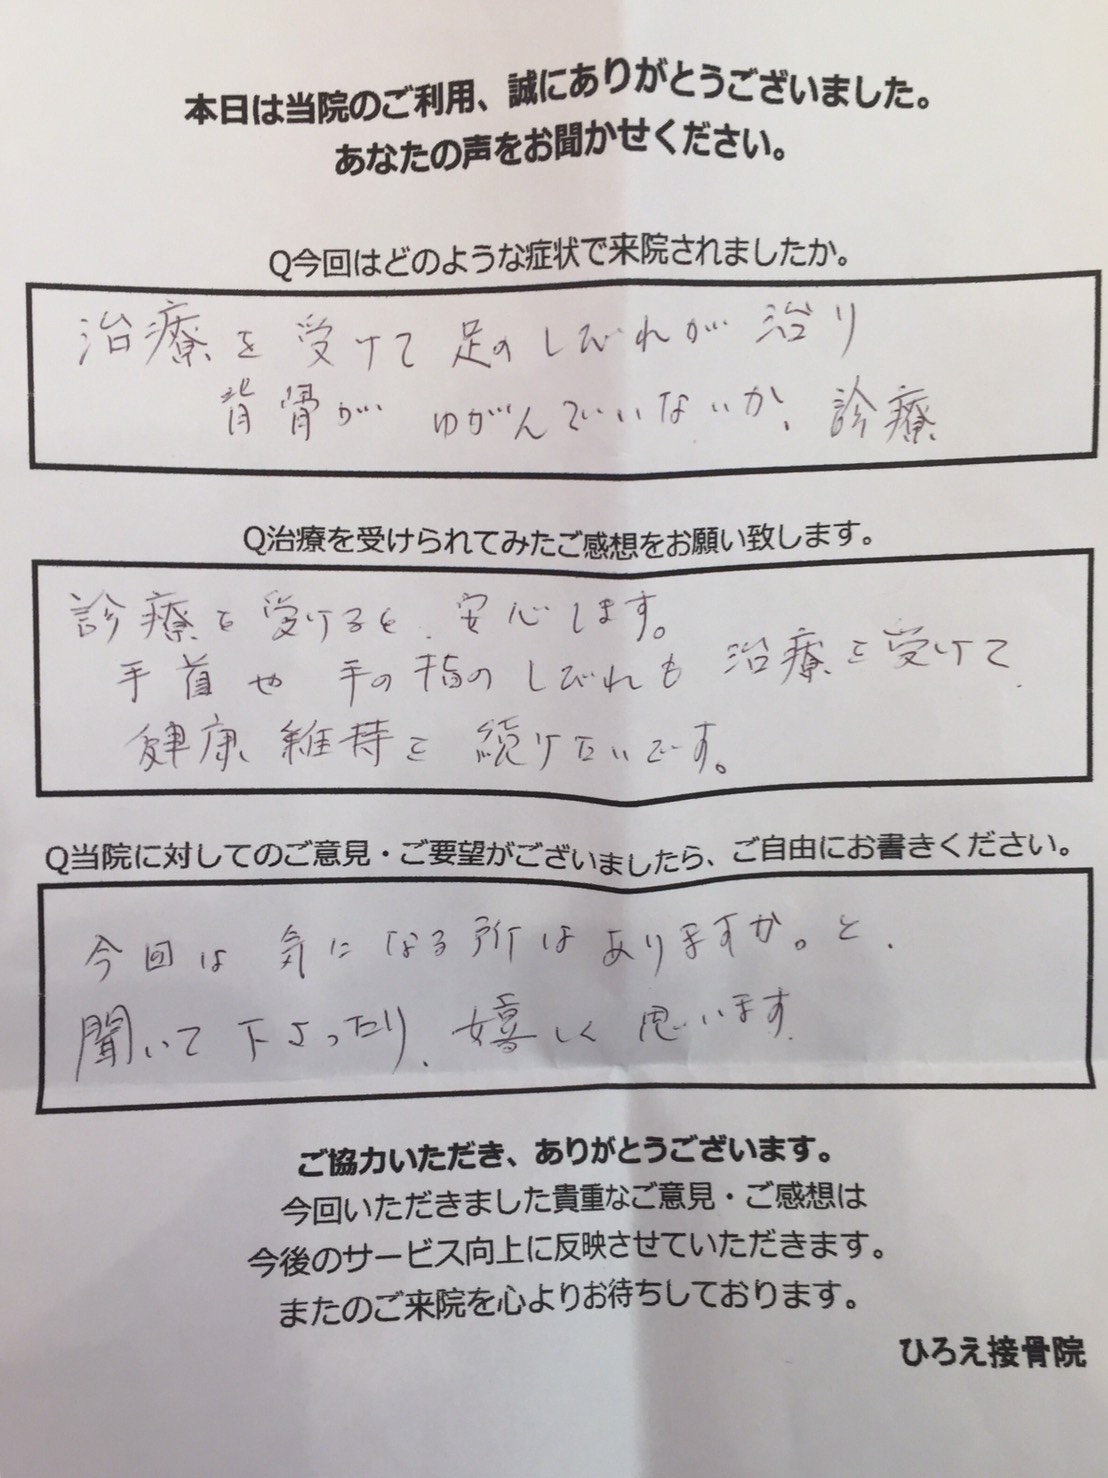 本日は当院のご利用、誠にありがとうございました。
あなたの声をお聞かせください。
Q今回はどのような症状で来院されましたか。
治療を受けて足のしびれが治り
背骨がゆがんでいないか、診療
Q治療を受けられてみたご感想をお願い致します。
診療を受けると、安心します。
手首や手の指のしびれも治療を受けて
健康維持を続けたいです。
Q当院に対してのご意見・ご要望がございましたら、ご自由にお書きください。
今回は気になる所はありますか。と、
聞いて下さったり、嬉しく思います
ご協力いただき、ありがとうございます。
今回いただきました貴重なご意見・ご感想は
今後のサービス向上に反映させていただきます。
またのご来院を心よりお待ちしております。
ひろえ接骨院